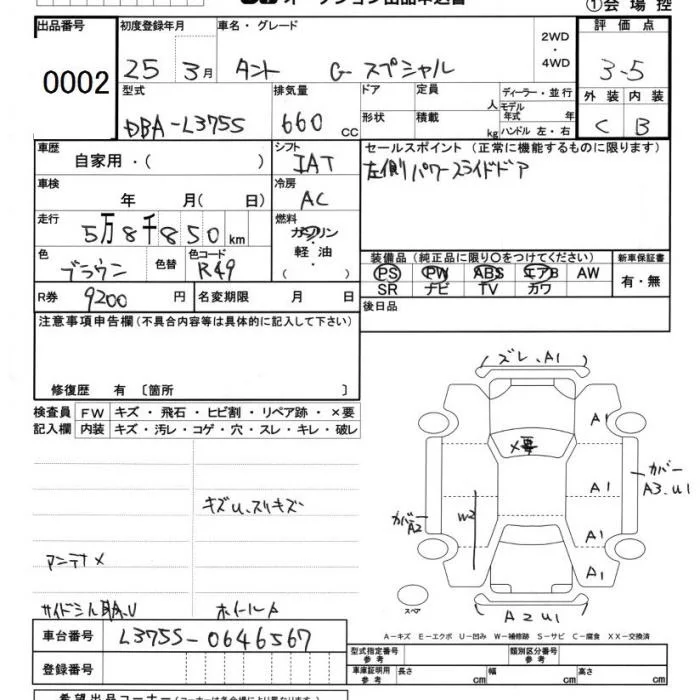 オークション出品申込書
①会場控
出品番号 初度登録年月 車名・グレード 2WD・4WD 評価点
0002 25 3月 タント G-スペシャル 3-5
型式 排気量 ドア 定員 人 ディーラー・並行 外装 内装
DBA-L375S 660 cc 形状 積載 kg モデル年式 年 ハンドル 左・右 C B
車歴 シフト セールスポイント(正常に機能するものに限ります)
自家用・( ) IAT 左側パワースライドドア
車検 年 月( 日) 冷房 AC
走行 5万8千850km 燃料 ガソリン・軽油・( )
色 ブラウン 色替 色コード R49
装備品(純正品に限り○をつけてください) 新車保証書
PS PW ABS エアB AW 有・無
SR ナビ TV カワ
R券 9200円 名変期限 月 日 後日品
注意事項申告欄(不具合内容等は具体的に記入して下さい)
修復歴 有 〔箇所 〕
検査員 FW キズ・飛石・ヒビ割・リペア跡・×要
記入欄 内装 キズ・汚レ・コゲ・穴・スレ・キレ・破レ
ズレ、A1
A1
×要
カバー A3.U1
A1
カバー A2
W2
A1
A1
キズU、スリキズ
アンテナ×
スペア
ホイールA
A2U1
A-キズ E-エクボ U-凹み W-補修跡 S-サビ C-腐食 XX-交換済
車台番号 L375S-0646567
型式指定番号 参考 類別区分番号 参考
登録番号
車庫証明用 参考 長さ cm 幅 cm 高さ cm
希望出品コーナー(コーナーは各会場により異なります)